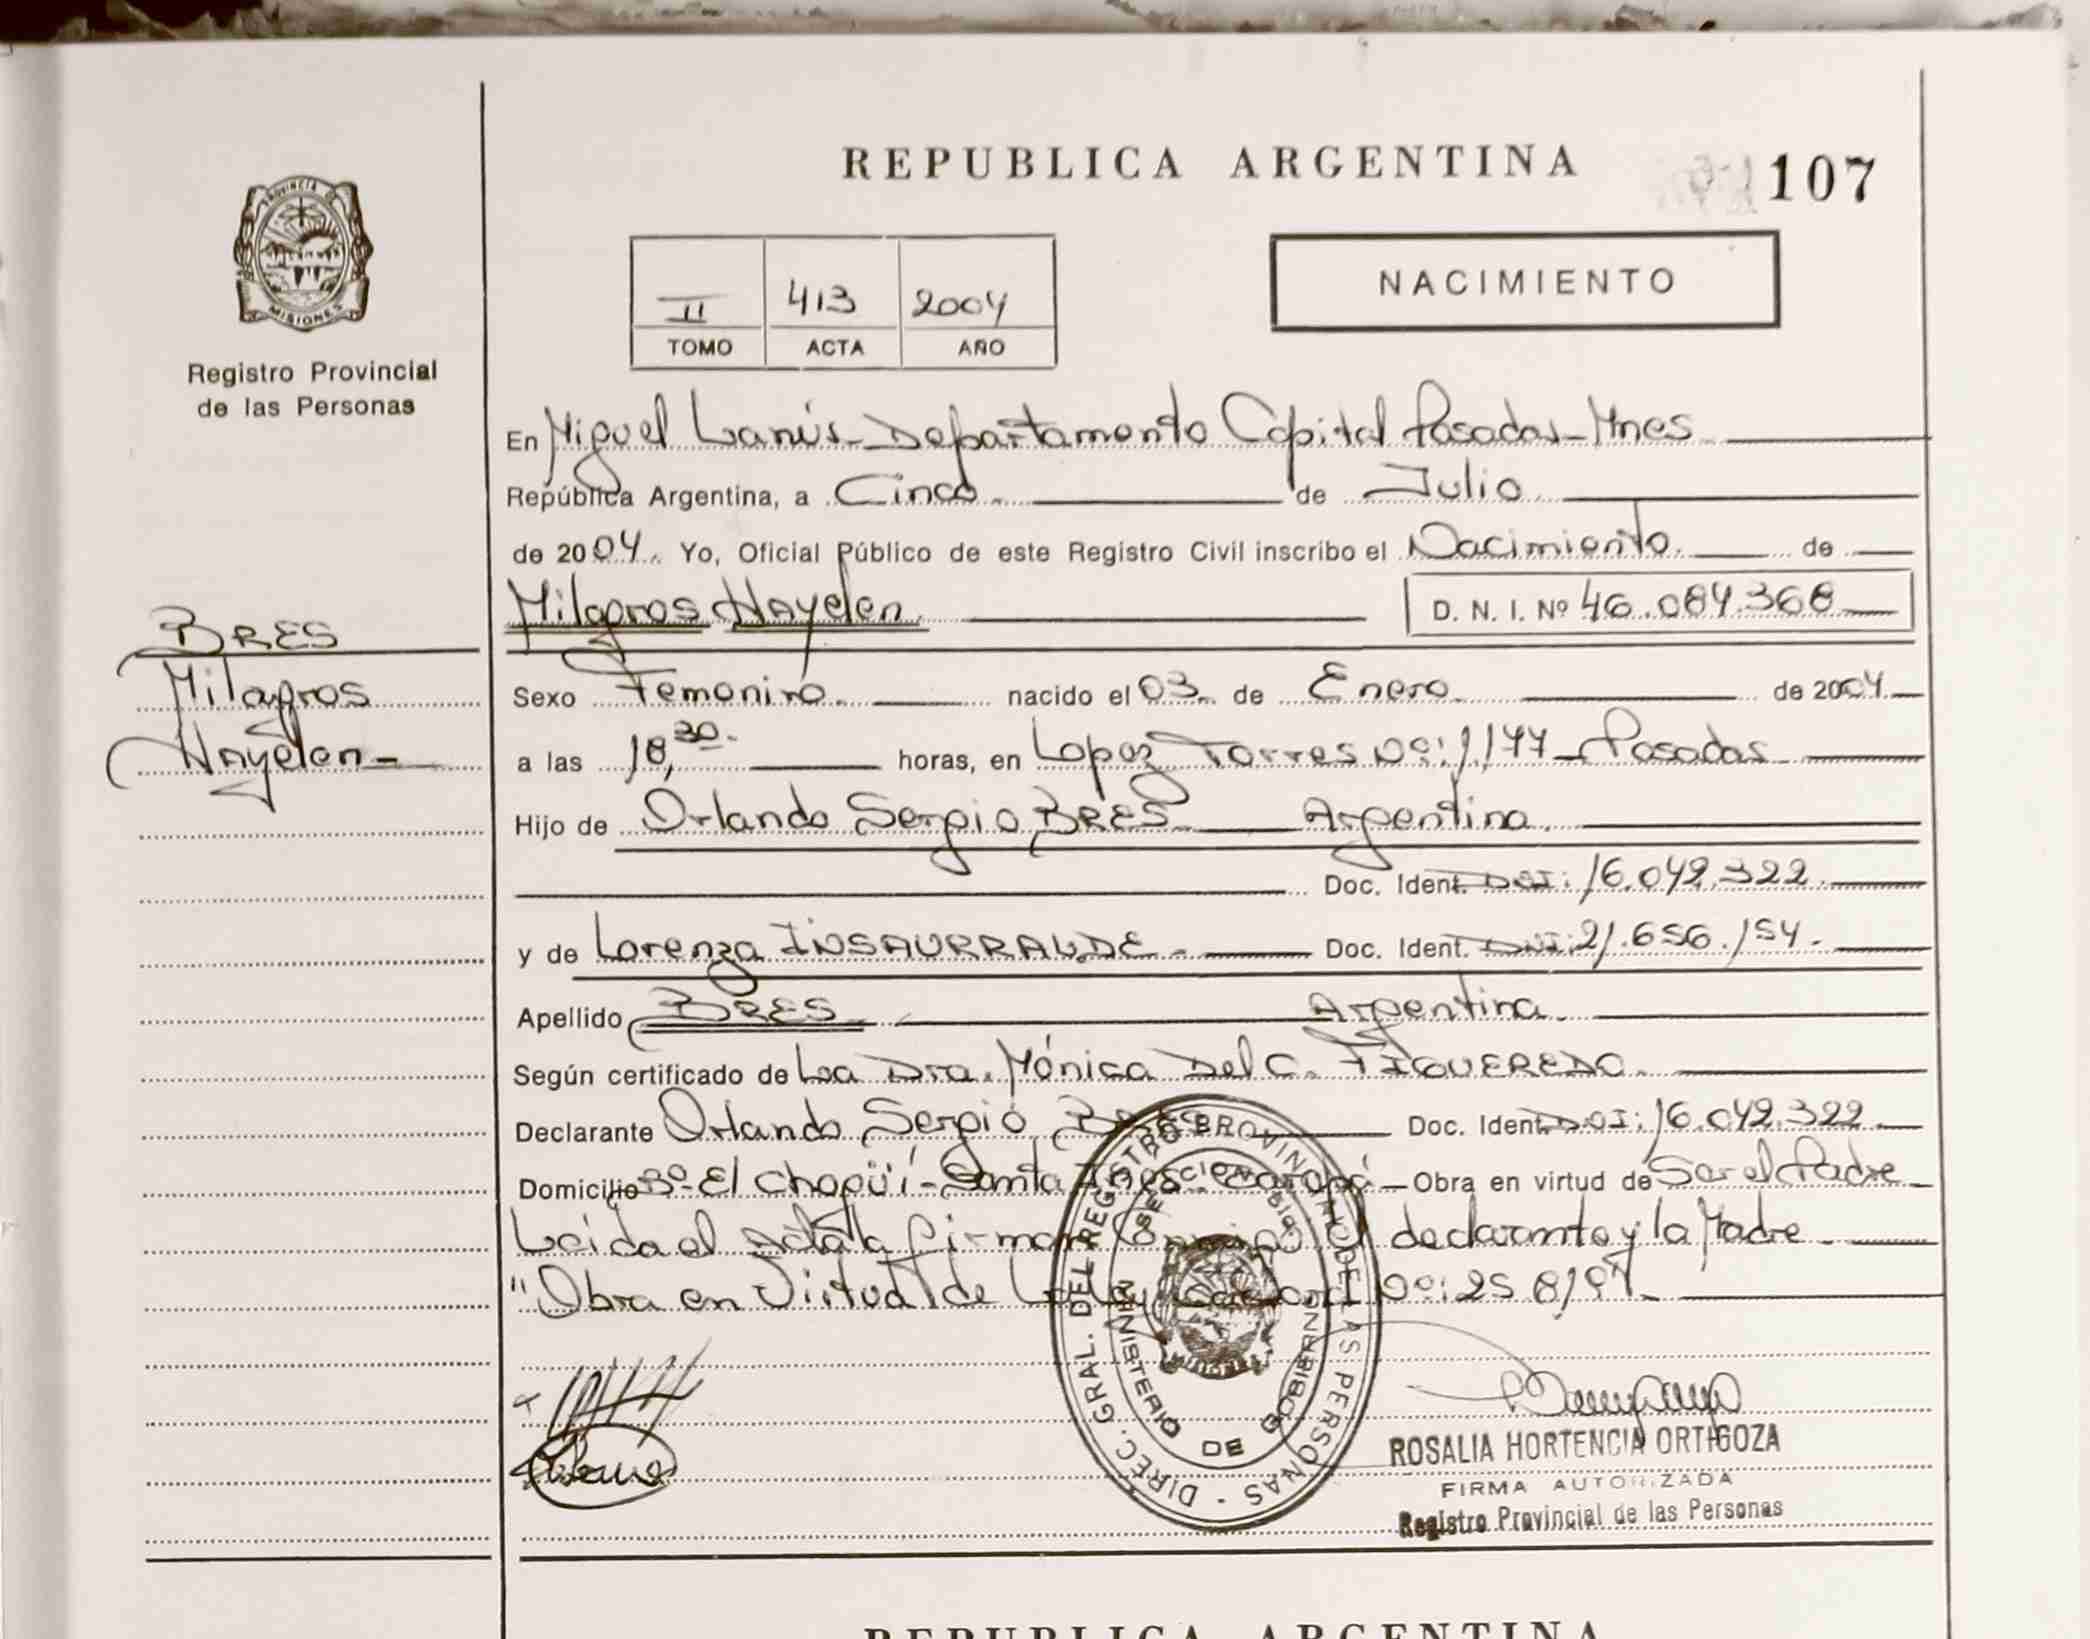 REPUBLICA ARGENTINA
107
PROVINCIA DE
MISIONES
Registro Provincial
de las Personas
II 413 2004
TOMO ACTA AÑO
NACIMIENTO
En Miguel Lanús - Departamento Capital Posadas - Mnes
República Argentina, a Cinco de Julio
de 2004. Yo, Oficial Público de este Registro Civil inscribo el Nacimiento de
Milagros Nayelen D. N. I. Nº 46.084.368
BRES
Milagros
Nayelen -
Sexo Femenino nacido el 03 de Enero de 2004
a las 18,30 horas, en Lopez Torres Nº: 1177 - Posadas
Hijo de Orlando Sergio BRES Argentina
Doc. Ident. DNI: 16.042.322
y de Lorenza INSAURRALDE - Doc. Ident. DNI: 21.656.154.
Apellido BRES Argentina
Según certificado de La Dra. Mónica Del C. FIGUEREDO
Declarante Orlando Sergio BRES Doc. Ident. DNI: 16.042.322
Domicilio Bº El Chaquí - Santa Ines - Garapá - Obra en virtud de Ser el Padre
Leida el Acta la firman Conmigo el declarante y la Madre
"Obra en Virtud de La Ley Nº: 25 8/97
DIREC. GRAL. DEL REGISTRO PROVINCIAL DE LAS PERSONAS -
MINISTERIO DE GOBIERNO
ROSALIA HORTENCIA ORTIGOZA
FIRMA AUTORIZADA
Registro Provincial de las Personas
REPUBLICA ARGENTINA